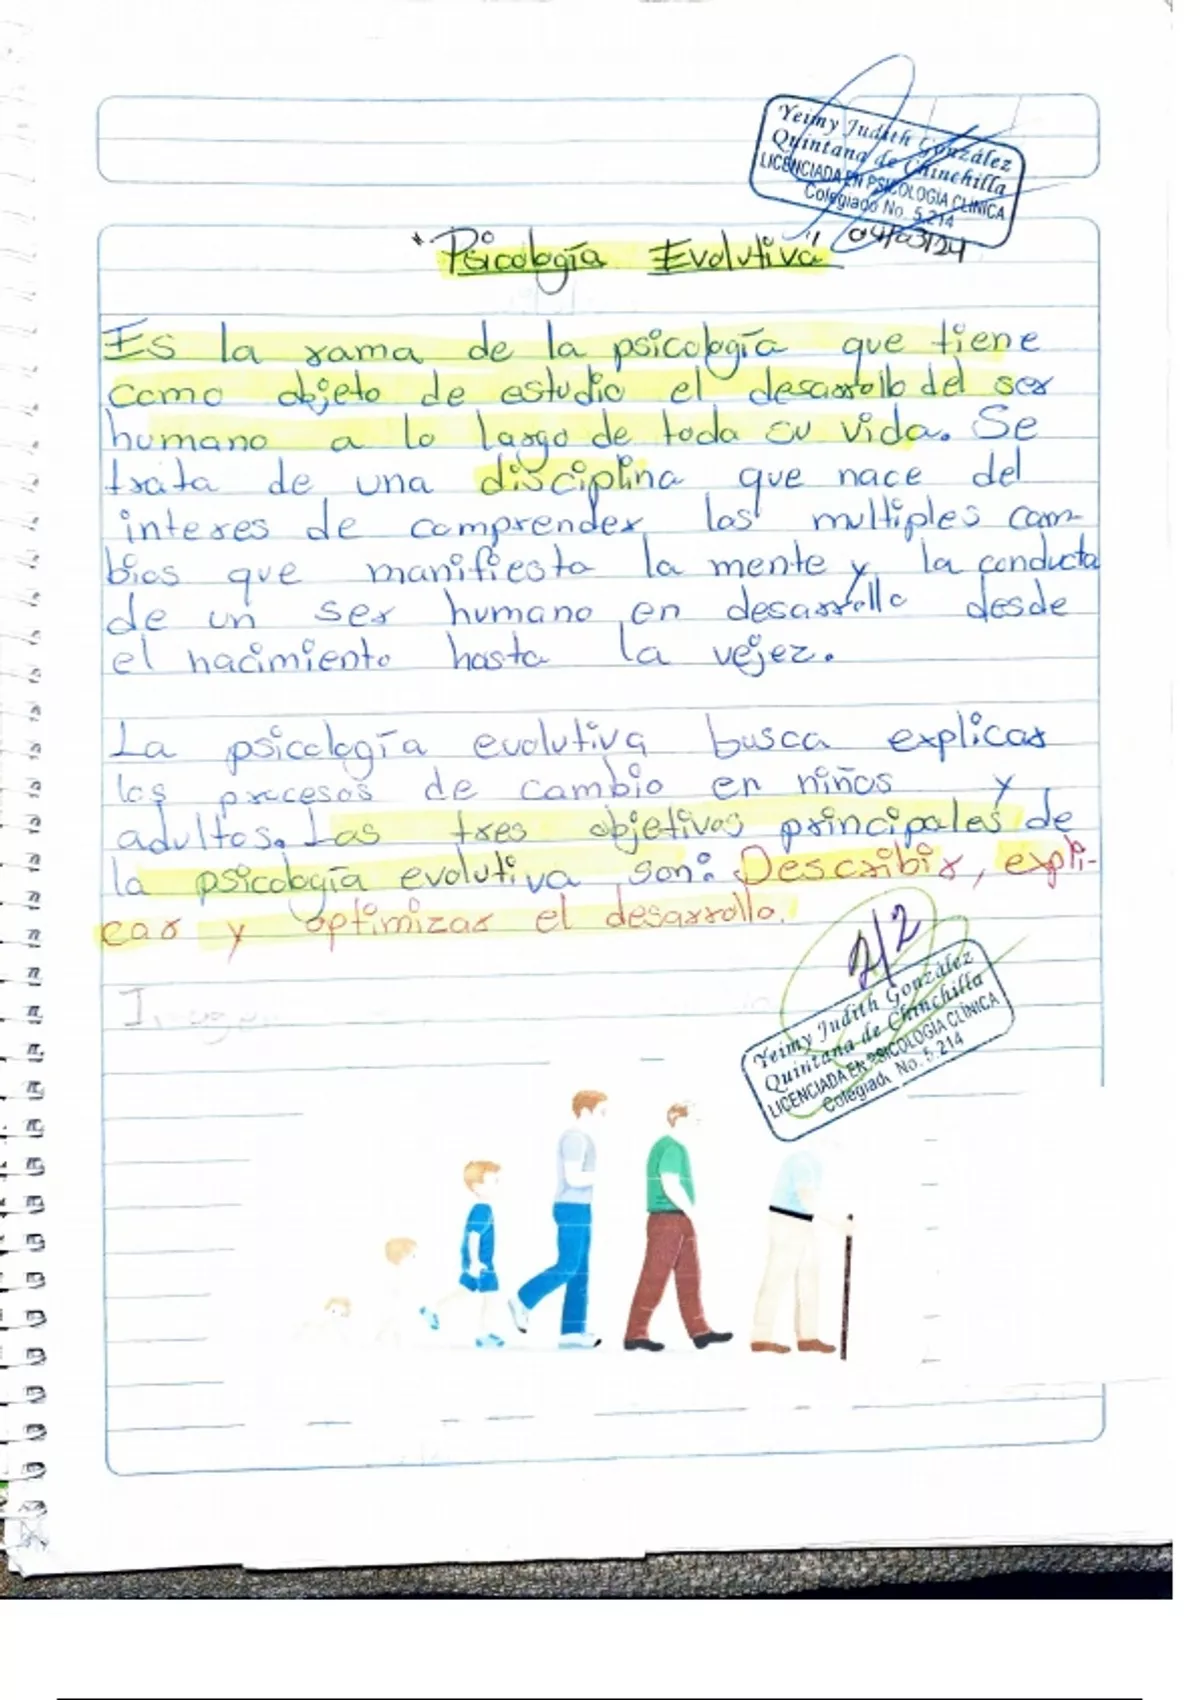 Yeimy Judith González
Quintana de Chinchilla
LICENCIADA EN PSICOLOGÍA CLÍNICA
Colegiado No. 5,214
"Psicología Evolutiva" 04/03/24
Es la rama de la psicología que tiene
como objeto de estudio el desarrollo del ser
humano a lo largo de toda su vida. Se
trata de una disciplina que nace del
interes de comprender los multiples cam-
bios que manifiesta la mente y la conducta
de un ser humano en desarrollo desde
el nacimiento hasta la vejez.
La psicología evolutiva busca explicar
los procesos de cambio en niños y
adultos. Las tres objetivos principales de
la psicología evolutiva son: Describir, expli-
car y optimizar el desarrollo.
2/2
Yeimy Judith González
Quintana de Chinchilla
LICENCIADA EN PSICOLOGIA CLÍNICA
Colegiado No. 5,214